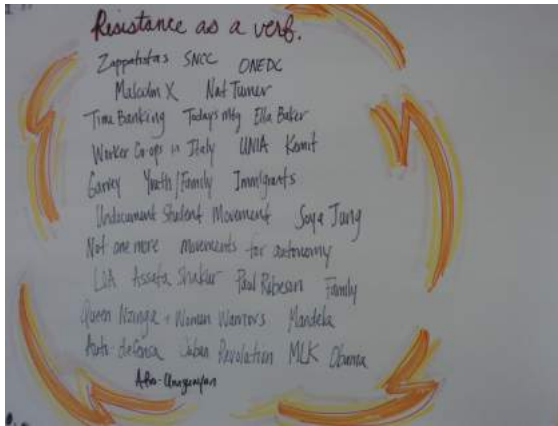 Resistance as a verb.
Zappatistas SNCC ONEDC
Malcolm X Nat Turner
Time Banking Today's mtg Ella Baker
Worker Co-ops in Italy UNIA Kemit
Garvey Youth/Family Immigrants
Undocument Student Movement Soya Jung
Not one more movements for autonomy
Assata Shakur Paul Robeson Family
Queen Nzinga + Woman Warriors Mandela
Auto-defensa Cuban Revolution MLK Obama